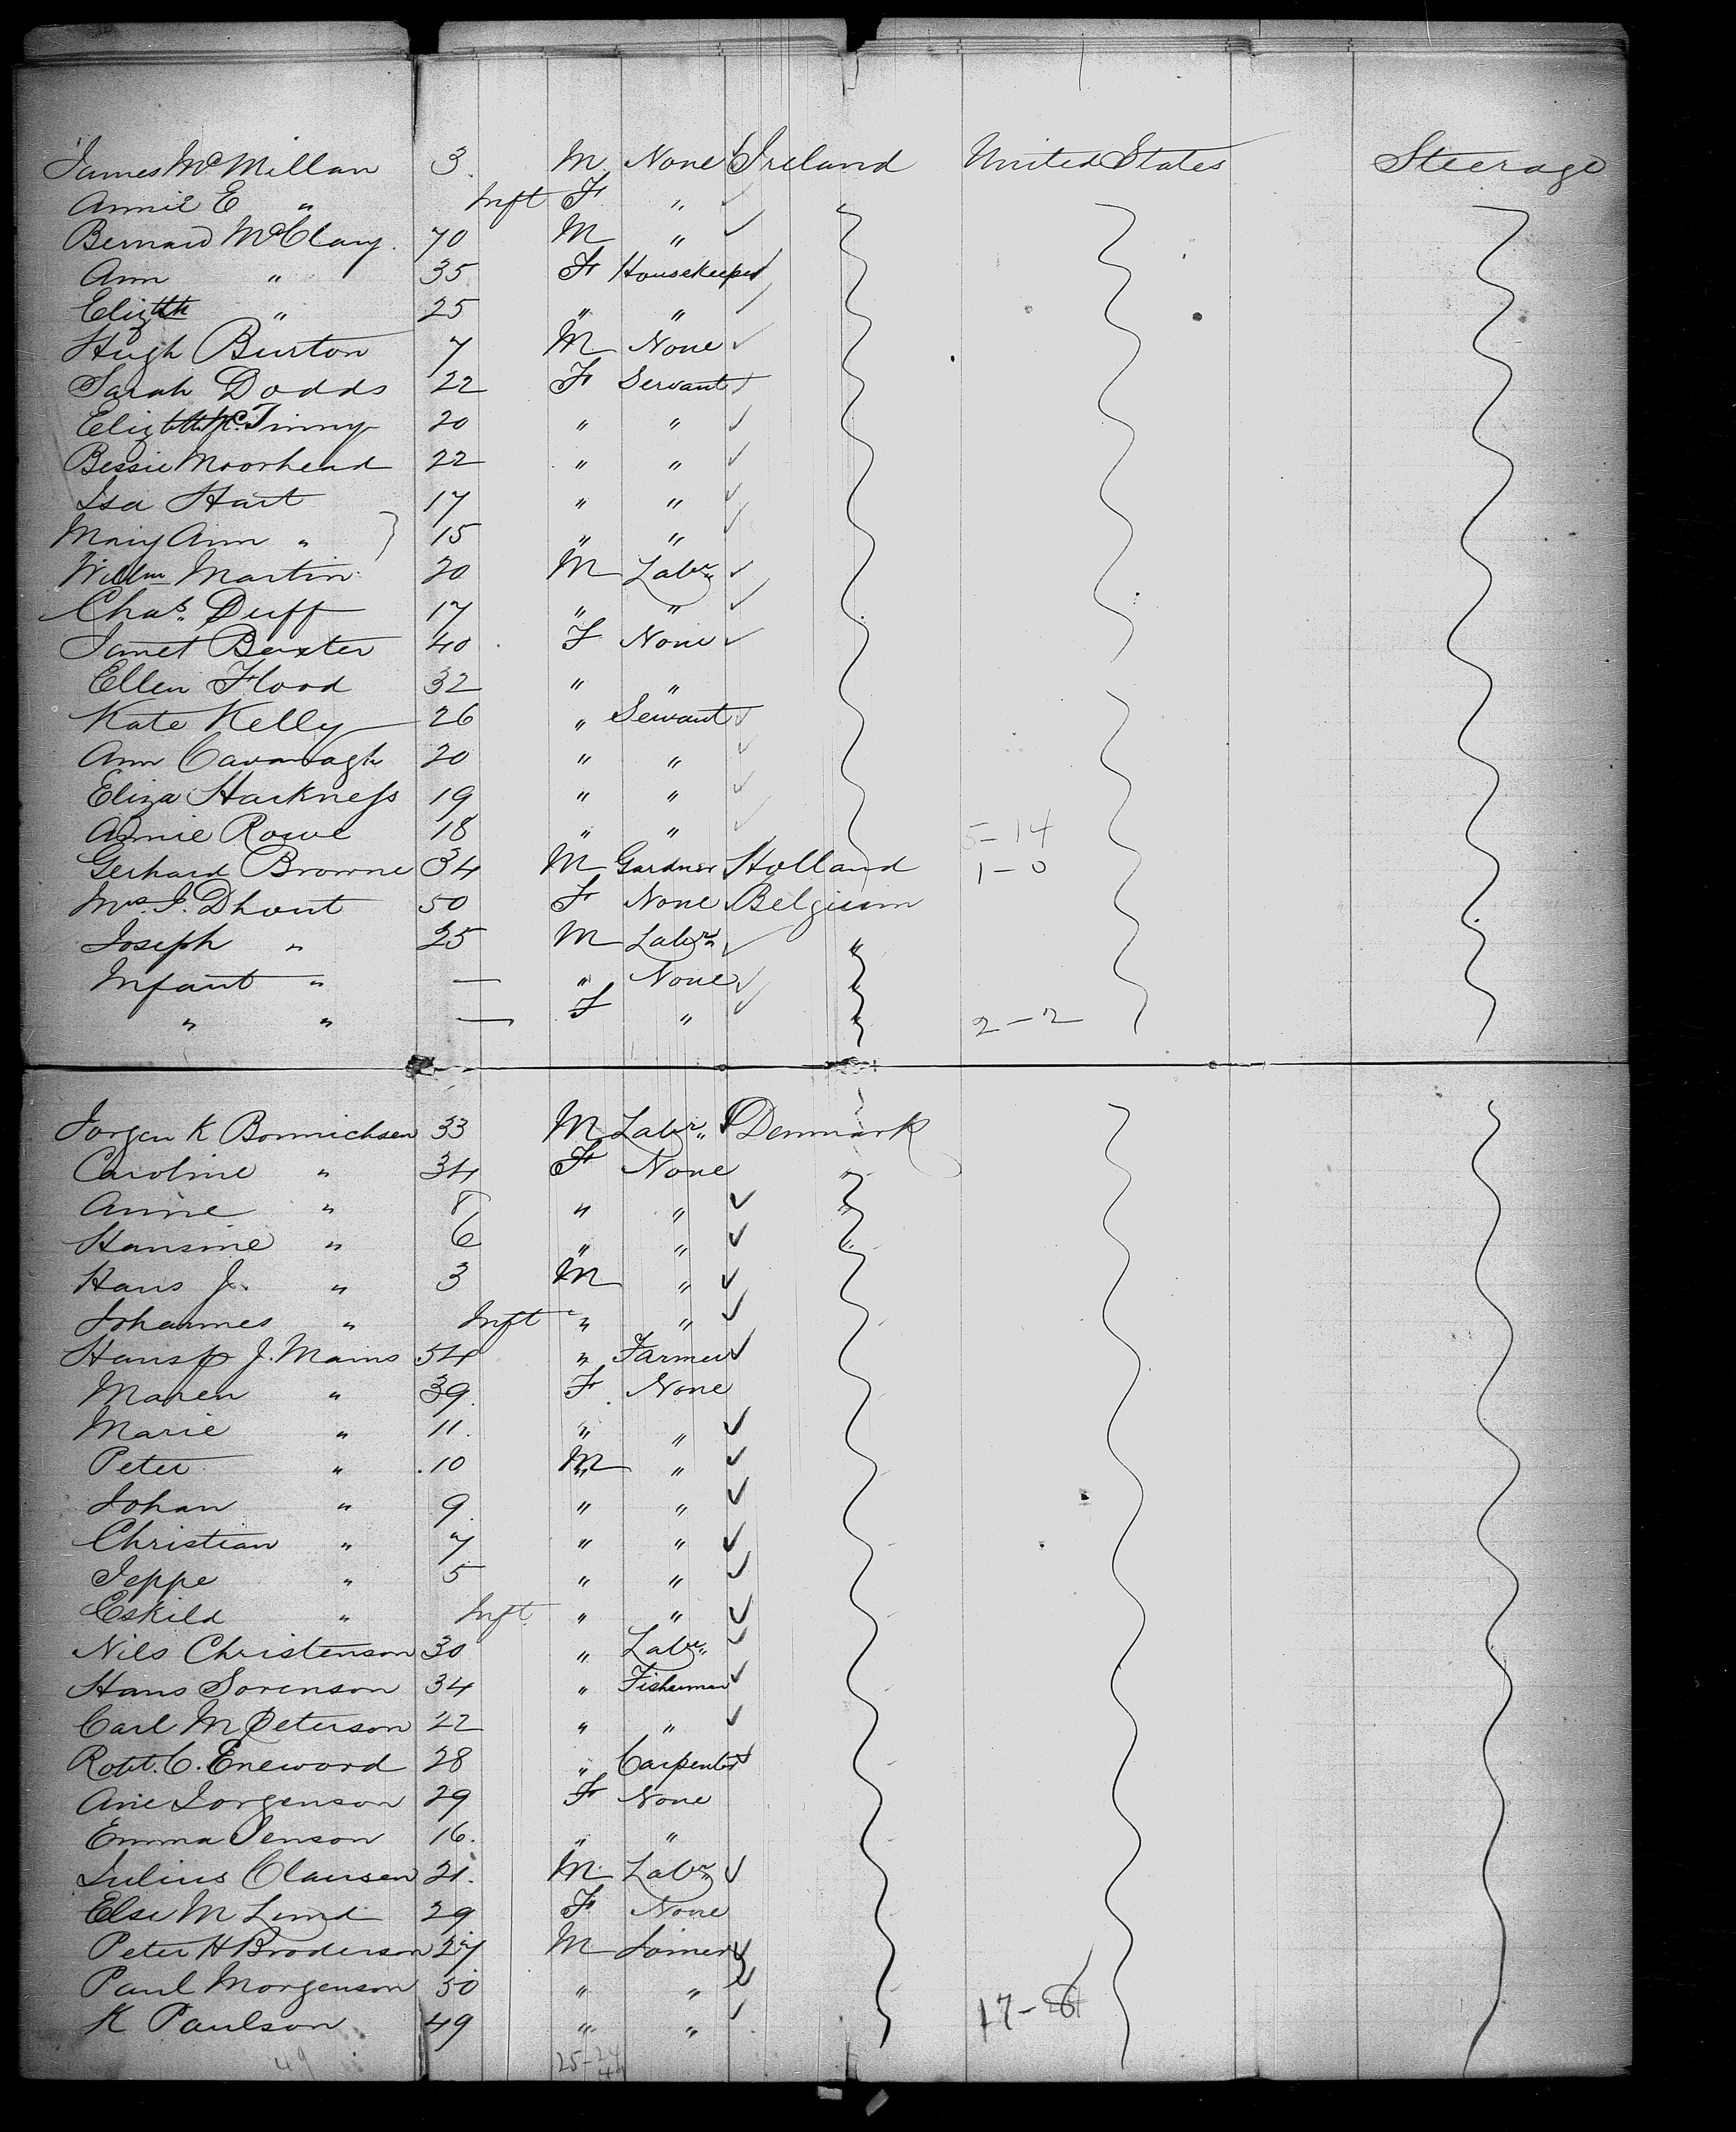 James McMillan 3 M None Ireland United States Steerage
Annie E " Inft F "
Bernard McClary 70 M "
Ann " 35 F Housekeeper
Elizbth " 25 " "
Hugh Burton 7 M None
Sarah Dodds 22 F Servant
Elizbth McTinny 20 " "
Bessie Moorhead 22 " "
Isa Hart 17 " "
Mary Ann " 15 " "
Willm Martin 20 M Labr
Chas. Duff 17 " "
Janet Baxter 40 F None
Ellen Flood 32 " "
Kate Kelly 26 " Servant
Ann Cavanagh 20 " "
Eliza Harkness 19 " "
Annie Rowe 18 " " 5-14
Gerhard Browne 34 M Gardner Holland 1-0
Mrs. J. Dhont 50 F None Belgium
Joseph " 25 M Labr "
Infant " — " None "
" " — F " " 2-2
Jorgen K Bonnichsen 33 M Labr Denmark
Caroline " 34 F None "
Anne " 8 " " "
Hansine " 6 " " "
Hans J. " 3 M "
Johannes " Inft " "
Hansp J. Mains 54 " Farmer
Maren " 39 F None
Marie " 11 " "
Peter " 10 M "
Johan " 9 " "
Christian " 7 " "
Jeppe " 5 " "
Eskild " Inft " "
Nils Christenson 30 " Labr
Hans Sorenson 34 " Fisherman
Carl M Peterson 22 " "
Robt. C. Eneword 28 " Carpenter
Ane Jorgenson 29 F None
Emma Jenson 16 " "
Julius Clausen 21 M Labr
Else M Lund 29 F None
Peter H Broderson 27 M Joiner
Paul Morgenson 50 " "
K Paulson 49 " " 17-8
49 25-24
49